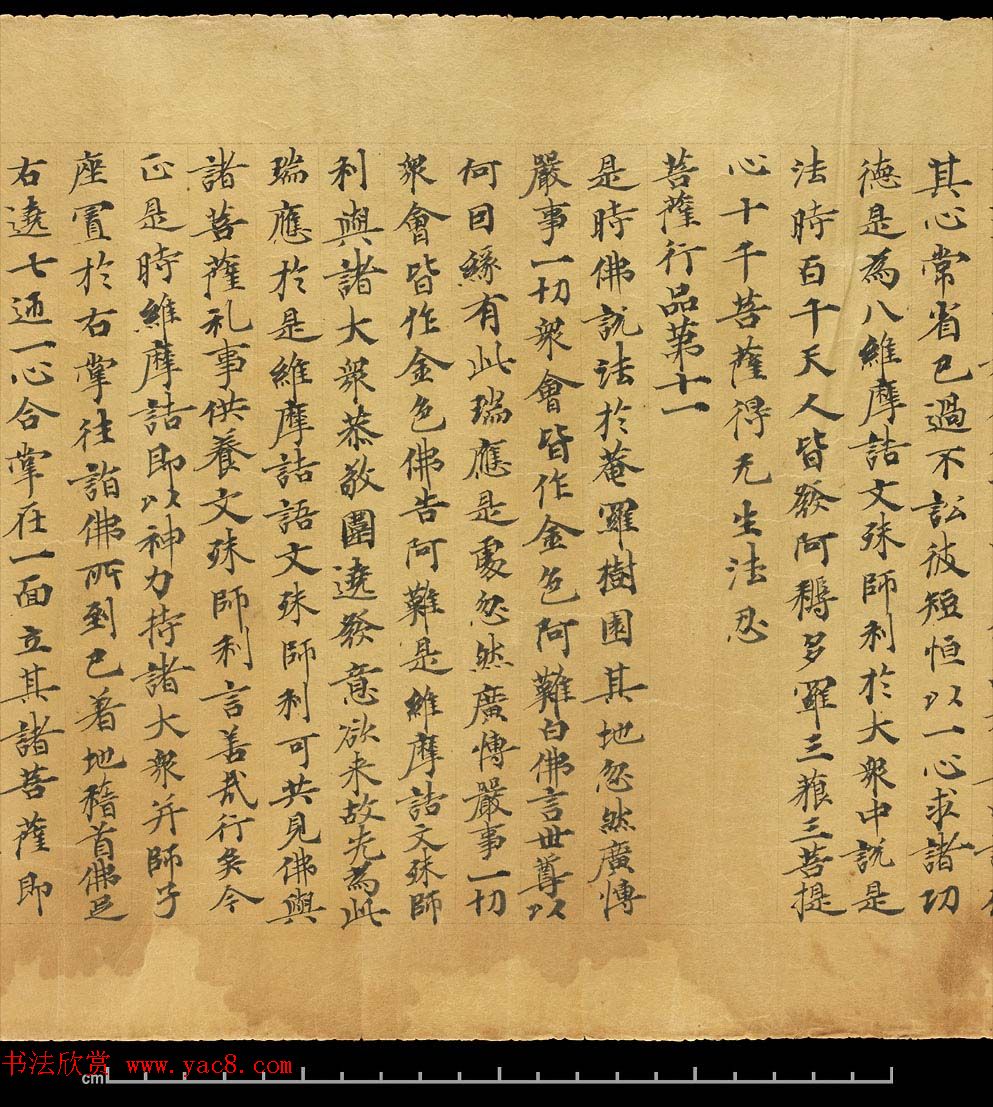 其心常省已過不訟彼短恒以一心求諸功
德是為八維摩詰文殊師利於大衆中說是
法時百千天人皆發阿耨多羅三藐三菩提
心十千菩薩得无生法忍
菩薩行品第十一
是時佛說法於菴羅樹園其地忽然廣博
嚴事一切衆會皆作金色阿難白佛言世尊以
何因緣有此瑞應是處忽然廣博嚴事一切
衆會皆作金色佛告阿難是維摩詰文殊師
利與諸大衆恭敬圍遶發意欲来故先為此
瑞應於是維摩詰語文殊師利可共見佛與
諸菩薩礼事供養文殊師利言善哉行矣今
正是時維摩詰即以神力持諸大衆并師子
座置於右掌往詣佛所到已著地稽首佛足
右遶七通一心合掌在一面立其諸菩薩即
书法欣赏 www.yac8.com
cm